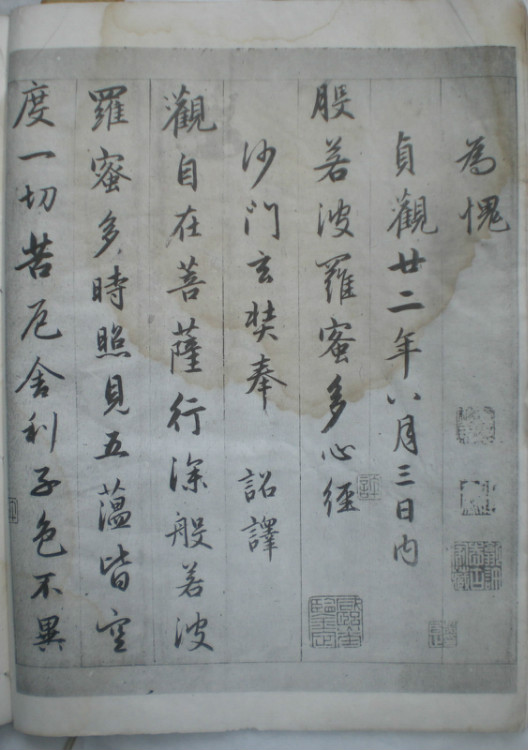 為愧
貞觀廿二年八月三日內
般若波羅蜜多心經
沙門玄奘奉 詔譯
觀自在菩薩行深般若波
羅蜜多時照見五蘊皆空
度一切苦厄舍利子色不異